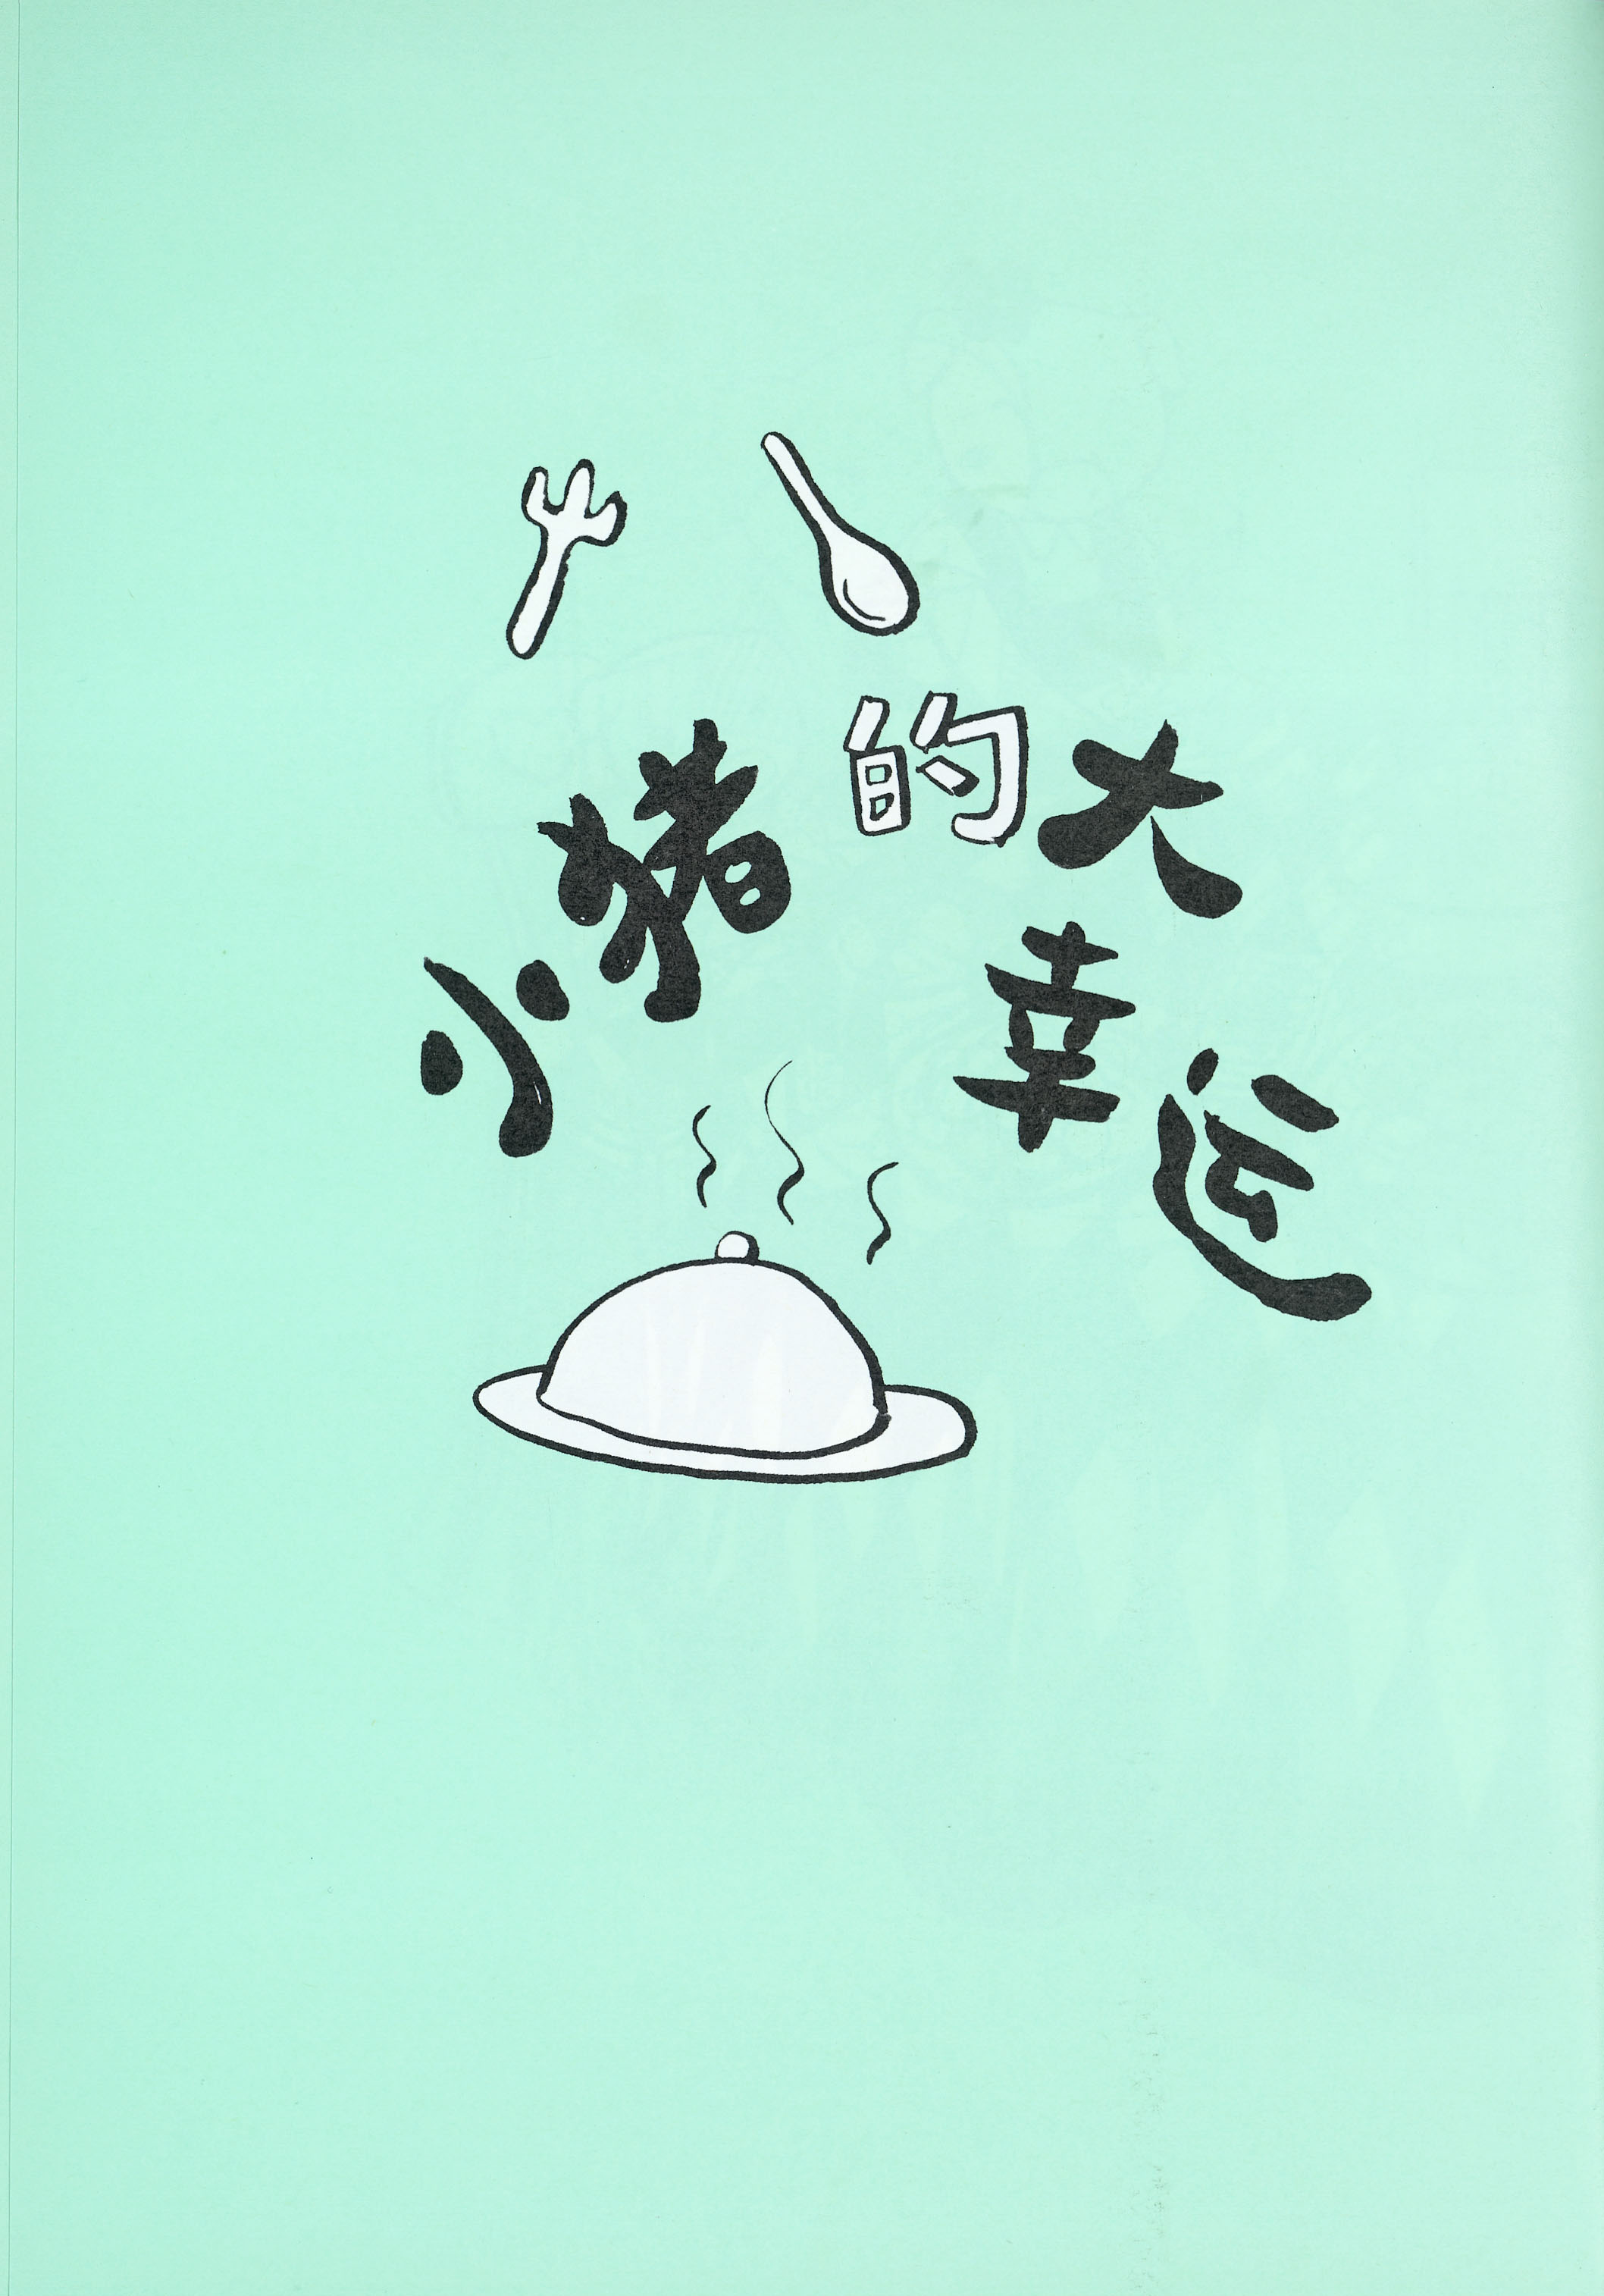 小猪的大幸运